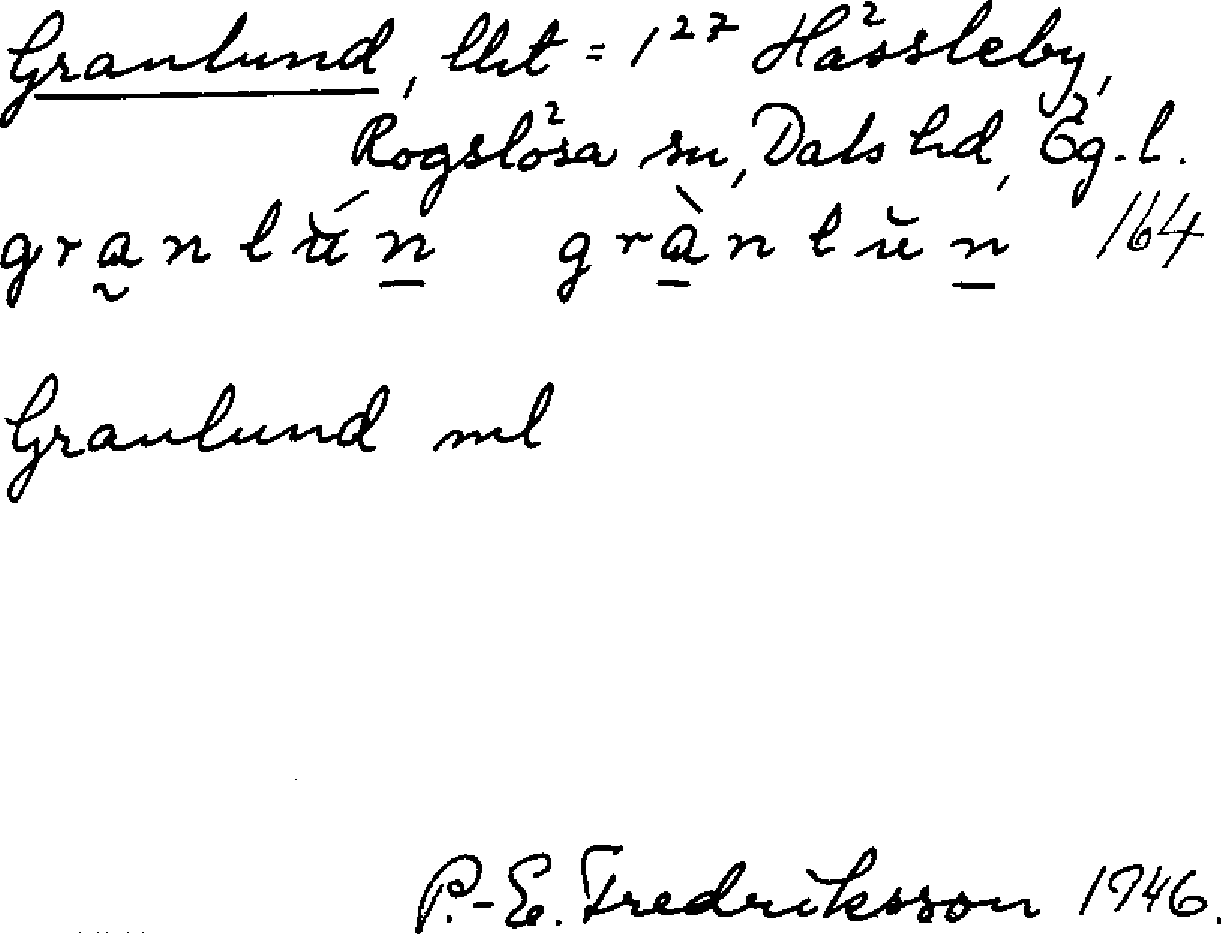 Granlund, lht = 1²⁷ Hässleby,
Rogslösa sn, Dals hd, Ög. l.
gra̰nlŭ́n̲ grà̲nlŭn̲ 164
Granlund ml
P.-E. Fredriksson 1946.